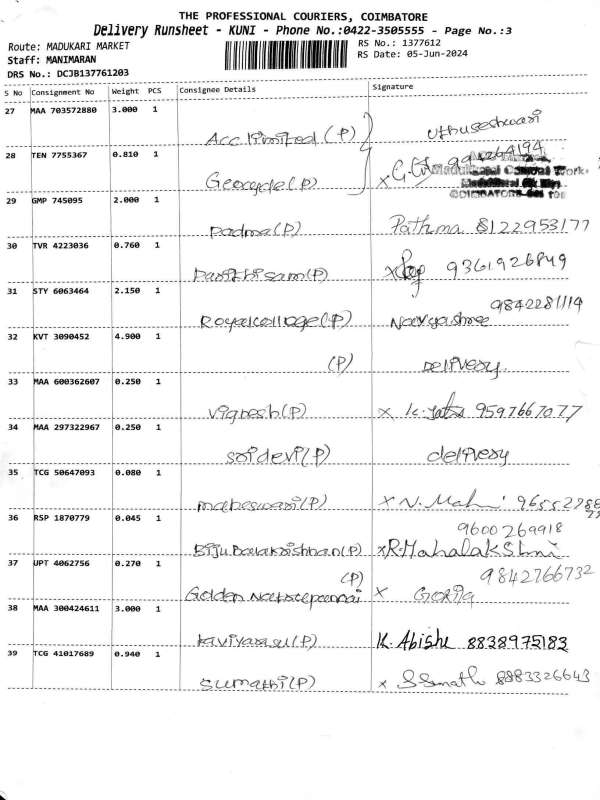 THE PROFESSIONAL COURIERS, COIMBATORE
Delivery Runsheet - KUNI - Phone No.:0422-3505555 - Page No.:3
Route: MADUKARI MARKET RS No.: 1377612
Staff: MANIMARAN RS Date: 05-Jun-2024
DRS No.: DCJB137761203
S No Consignment No Weight PCS Consignee Details Signature
27 MAA 703572880 3.000 1
Acc limited (P) uthuseshwari
28 TEN 7755367 0.810 1
Geocycle (P)
29 GMP 745095 2.000 1
Padma (P) Pathma 8122953177
30 TVR 4223036 0.760 1
(P) 9361926849
31 STY 6063464 2.150 1 9842281119
Royal college (P)
32 KVT 3090452 4.900 1
(P) Delivery
33 MAA 600362607 0.250 1
Vignesh (P) x 9597667077
34 MAA 297322967 0.250 1
Sridevi (P) delivery
35 TCG 50647093 0.080 1
maheswari (P) x N. Mahi
36 RSP 1870779 0.045 1 9600269918
Biju Balakrishnan (P) x R. Mahalakshmi
37 UPT 4062756 0.270 1 (P) 9842766732
Golden x
38 MAA 300424611 3.000 1
kaviyarasu (P) K. Abishe 8838975183
39 TCG 41017689 0.940 1
Sumathi (P) x 8883326643